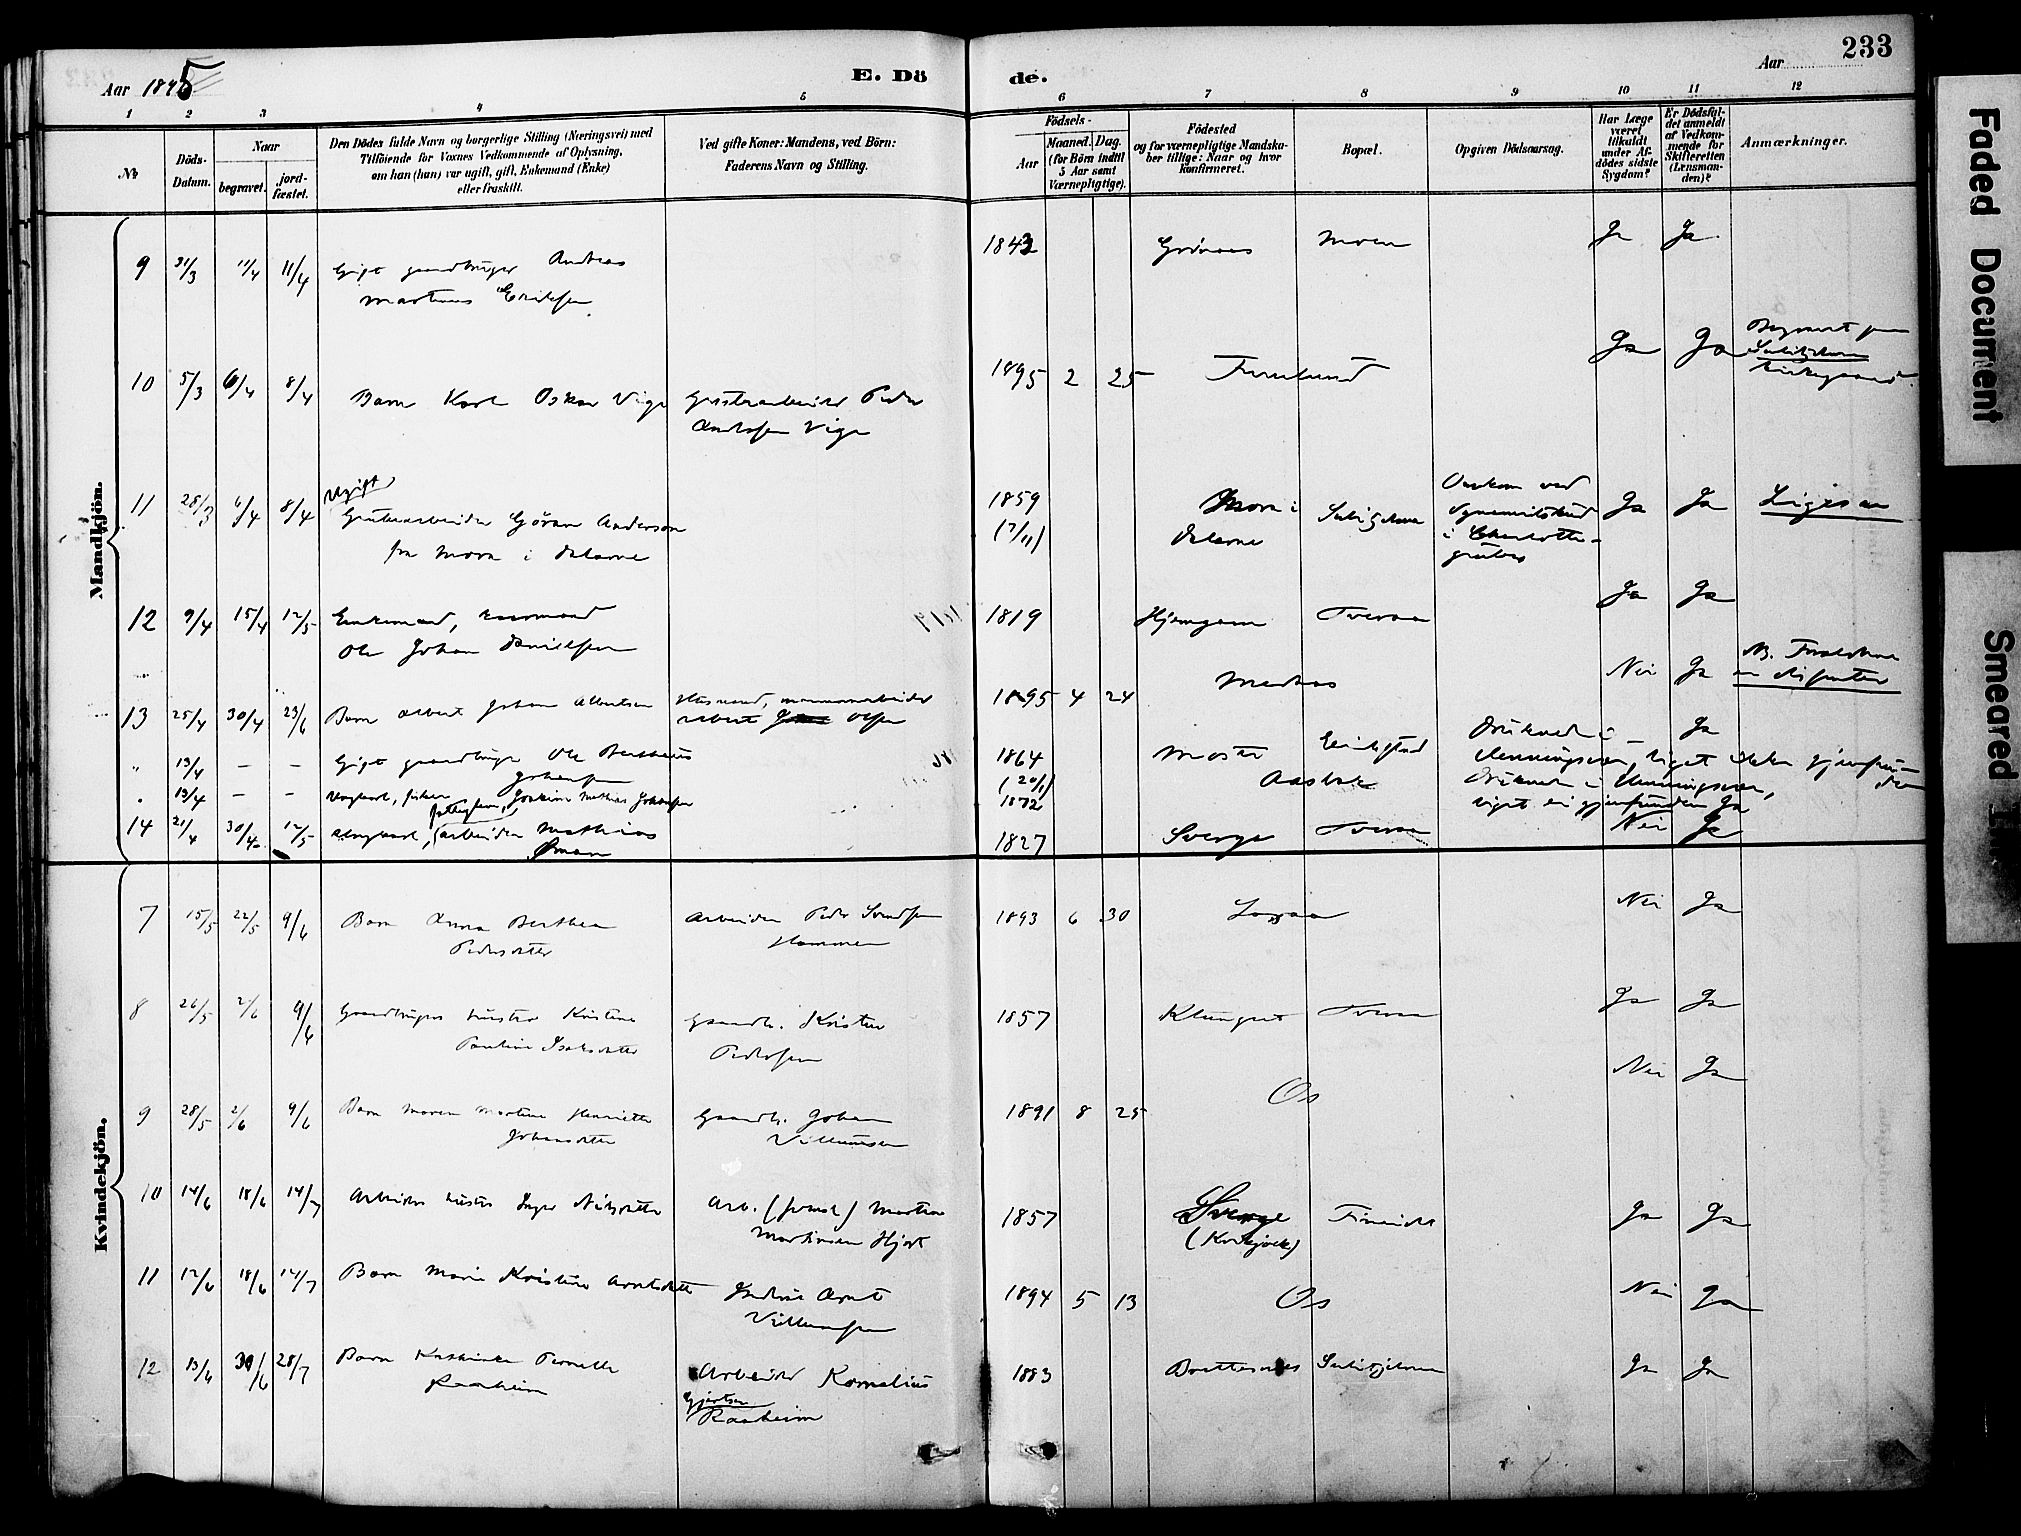 233
Aar 1895
E. Dö
de.
Aar
1 2 3 4 5 6 7 8 9 10 11 12
No
Döds-
Datum.
Naar
begravet.
jord-
fæstet.
Den Dödes fulde Navn og borgerlige Stilling (Næringsvei) med
Tilföiende for Voxnes Vedkommende af Oplysning,
om han (hun) var ugift, gift, Enkemand (Enke)
eller fraskilt.
Ved gifte Koner: Mandens, ved Börn:
Faderens Navn og Stilling.
Födsels-
Aar
Maaned. Dag.
(for Börn indtil
5 Aar samt
Værnepligtige).
Födested
og for værnepligtige Mandska-
ber tillige: Naar og hvor
konfirmeret.
Bopæl.
Opgiven Dödsaarsag.
Har Læge
været
tilkaldt
under Af-
dödes sidste
Sygdom?
Er Dödsfal-
det anmeldt
af Vedkom-
mende for
Skifteretten
(Lensman-
den)?
Anmærkninger.
Mandkjön.
9 31/3 11/4 11/4 Gift gaardbruger Andreas 1843 Moen Ja Ja
Martinus Eriksen
10 5/3 6/4 8/4 Barn Karl Oskar Vige Grubearbeider Peder 1895 2 25 Furulund Ja Ja
Andersen Vige
Kirkegaard.
11 28/3 6/4 8/4 Ugift
Grubearbeider Göran Anderson 1859 Mora i Sulitjelma Omkom ved Ja Ja Ligesaa
fra Mora i Dalarne (7/11) Dalarne dynamitskud
i Charlotta-
gruben
12 9/4 15/4 12/5 Enkemand, 1819 Hjemgam Tveraa Ja Ja
Ole Johan Danielsen
13 25/4 30/4 23/6 Barn Albert Johan Albertsen Husmand, 1895 4 24 Nei Ja NB. Forældrene
Albert Olsen er dissenter
" 13/4 — — Gift gaardbruger Ole Bertheus 1864 Druknede i — Ja
Johansen (20/1) Henningsvær, liget ikke gjenfun-
den
" 13/4 — — Ungkarl, fisker Joakim Mathias 1872 Aasbak Druknede i Henningsvær,
liget ei gjenfunden Ja
14 21/4 30/4 12/5 Ungkarl, arbeider Mathias 1827 Sverge Tveraa Nei Ja
Kvindekjön.
7 15/5 22/5 9/6 Barn Anna Berthea Arbeider Peder Svendsen 1893 6 30 Nei Ja
Pedersdatter Hammer
8 26/5 2/6 9/6 Gaardbrugers hustru Kristine Gaardb. Kristen 1857 Klunget Tveraa Ja Ja
Pauline Isaksdatter Pedersen
9 28/5 2/6 9/6 Barn Maren Martine Henriette Gaardb. Johan 1891 8 25 Os Nei Ja
Johansdatter Villumsen
10 14/6 18/6 14/7 Arbeiders hustru Inger Nilsdatter Arb. Martin 1857 Sverge Ja Ja
Martinsen Hjort (Kvikjock)
11 12/6 18/6 14/7 Barn Marie Kristine Arntsdatter Arnt 1894 5 13 Os Nei Ja
Villumsen
12 13/6 30/6 28/7 Barn Kathinka Pernelle Arbeider Kornelius 1883 Brettesnes Sulitjelma Ja Ja
Raaheim Gjertsen
Raaheim
Faded Document
Smeared